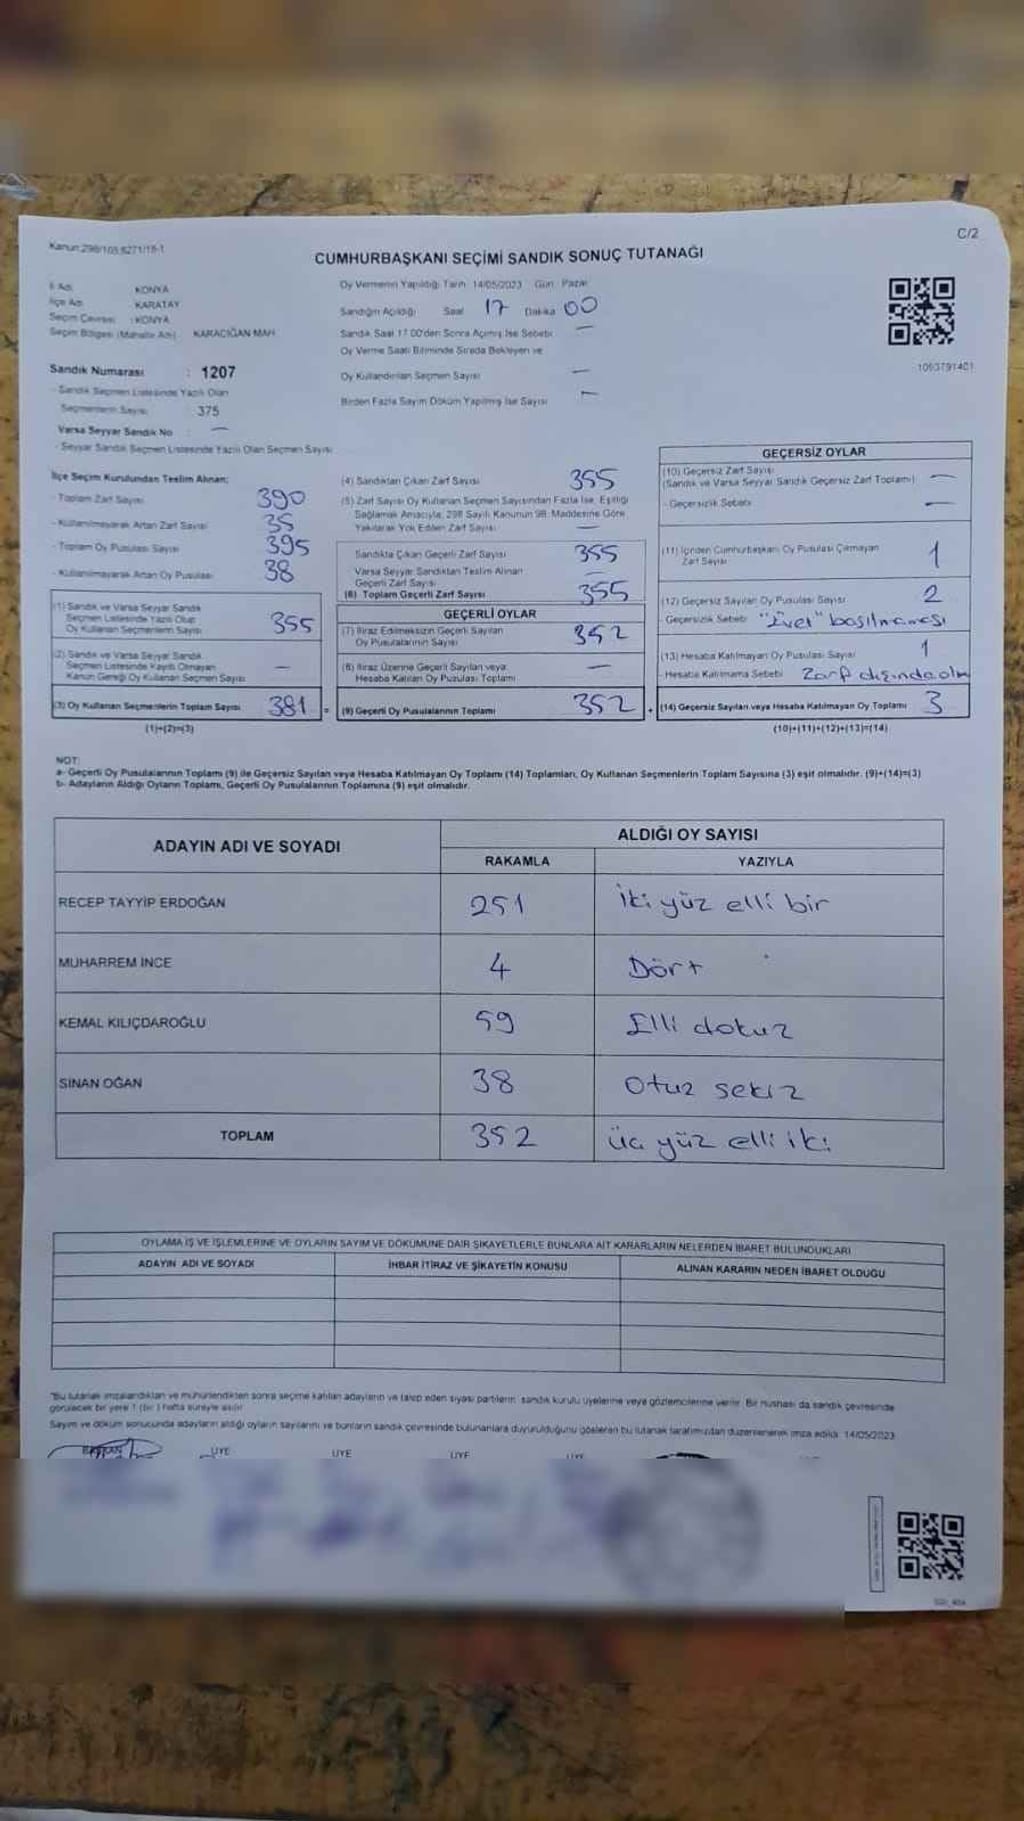 Kanun:298/105,6271/18-1
C/2
CUMHURBAŞKANI SEÇİMİ SANDIK SONUÇ TUTANAĞI
İl Adı : KONYA
İlçe Adı : KARATAY
Seçim Çevresi : KONYA
Seçim Bölgesi (Mahalle Adı) : KARACIĞAN MAH.
Sandık Numarası : 1207
- Sandık Seçmen Listesinde Yazılı Olan
Seçmenlerin Sayısı : 375
Varsa Seyyar Sandık No : —
- Seyyar Sandık Seçmen Listesinde Yazılı Olan Seçmen Sayısı
Oy Vermenin Yapıldığı Tarih 14/05/2023 Gün: Pazar
Sandığın Açıldığı Saat 17 Dakika 00
Sandık Saat 17.00'den Sonra Açılmış İse Sebebi —
Oy Verme Saati Bitiminde Sırada Bekleyen ve
Oy Kullandırılan Seçmen Sayısı —
Birden Fazla Sayım Döküm Yapılmış İse Sayısı —
1093791401
İlçe Seçim Kurulundan Teslim Alınan;
- Toplam Zarf Sayısı 390
- Kullanılmayarak Artan Zarf Sayısı 35
- Toplam Oy Pusulası Sayısı 395
- Kullanılmayarak Artan Oy Pusulası 38
(1) Sandık ve Varsa Seyyar Sandık
Seçmen Listesinde Yazılı Olup
Oy Kullanan Seçmenlerin Sayısı 355
(2) Sandık ve Varsa Seyyar Sandık
Seçmen Listesinde Kayıtlı Olmayan
Kanun Gereği Oy Kullanan Seçmen Sayısı —
(3) Oy Kullanan Seçmenlerin Toplam Sayısı 381 =
(1)+(2)=(3)
(4) Sandıktan Çıkan Zarf Sayısı 355
(5) Zarf Sayısı Oy Kullanan Seçmen Sayısından Fazla İse, Eşitliği
Sağlamak Amacıyla, 298 Sayılı Kanunun 98. Maddesine Göre
Yakılarak Yok Edilen Zarf Sayısı —
Sandıkta Çıkan Geçerli Zarf Sayısı 355
Varsa Seyyar Sandıktan Teslim Alınan
Geçerli Zarf Sayısı —
(6) Toplam Geçerli Zarf Sayısı 355
GEÇERLİ OYLAR
(7) İtiraz Edilmeksizin Geçerli Sayılan
Oy Pusulalarının Sayısı 352
(8) İtiraz Üzerine Geçerli Sayılan veya
Hesaba Katılan Oy Pusulası Toplamı —
(9) Geçerli Oy Pusulalarının Toplamı 352 +
GEÇERSİZ OYLAR
(10) Geçersiz Zarf Sayısı
(Sandık ve Varsa Seyyar Sandık Geçersiz Zarf Toplamı) —
- Geçersizlik Sebebi —
(11) İçinden Cumhurbaşkanı Oy Pusulası Çıkmayan
Zarf Sayısı 1
(12) Geçersiz Sayılan Oy Pusulası Sayısı 2
- Geçersizlik Sebebi "Evet" basılmaması
(13) Hesaba Katılmayan Oy Pusulası Sayısı 1
- Hesaba Katılmama Sebebi Zarf dışında olm
(14) Geçersiz Sayılan veya Hesaba Katılmayan Oy Toplamı 3
(10)+(11)+(12)+(13)=(14)
NOT:
a- Geçerli Oy Pusulalarının Toplamı (9) ile Geçersiz Sayılan veya Hesaba Katılmayan Oy Toplamı (14) Toplamları, Oy Kullanan Seçmenlerin Toplam Sayısına (3) eşit olmalıdır. (9)+(14)=(3)
b- Adayların Aldığı Oyların Toplamı, Geçerli Oy Pusulalarının Toplamına (9) eşit olmalıdır.
ADAYIN ADI VE SOYADI
ALDIĞI OY SAYISI
RAKAMLA YAZIYLA
RECEP TAYYİP ERDOĞAN 251 İki yüz elli bir
MUHARREM İNCE 4 Dört
KEMAL KILIÇDAROĞLU 59 Elli dokuz
SİNAN OĞAN 38 Otuz sekiz
TOPLAM 352 üç yüz elli iki
OYLAMA İŞ VE İŞLEMLERİNE VE OYLARIN SAYIM VE DÖKÜMÜNE DAİR ŞİKAYETLERLE BUNLARA AİT KARARLARIN NELERDEN İBARET BULUNDUKLARI
ADAYIN ADI VE SOYADI İHBAR İTİRAZ VE ŞİKAYETİN KONUSU ALINAN KARARIN NEDEN İBARET OLDUĞU
"Bu tutanak imzalandıktan ve mühürlendikten sonra seçime katılan adayların ve talep eden siyasi partilerin sandık kurulu üyelerine veya gözlemcilerine verilir. Bir nüshası da sandık çevresinde
görülecek bir yere 1 (bir) hafta süreyle asılır.
Sayım ve döküm sonucunda adayların aldığı oyların sayılarını ve bunların sandık çevresinde bulunanlara duyurulduğunu gösteren bu tutanak tarafımızdan düzenlenerek imza edildi. 14/05/2023
BAŞKAN ÜYE ÜYE ÜYE ÜYE